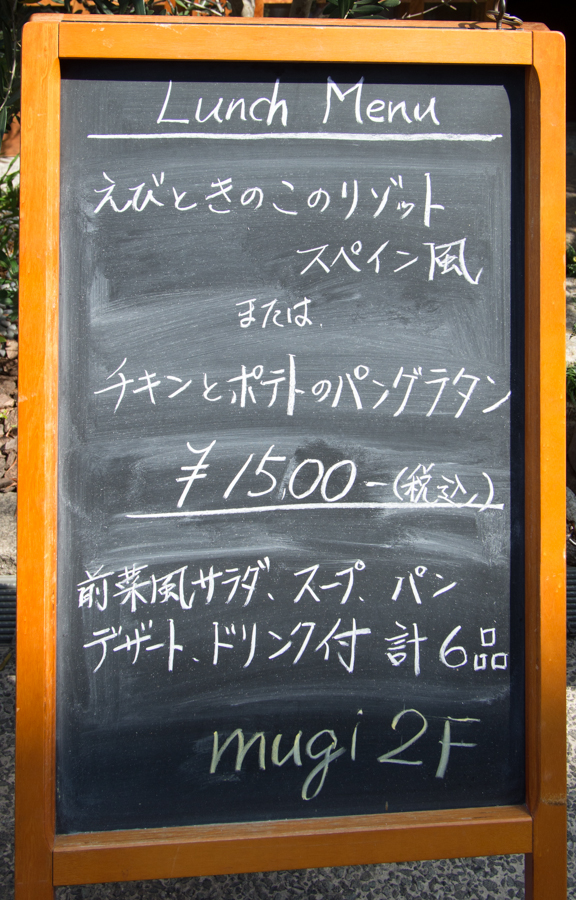 Lunch Menu
えびときのこのリゾット
スペイン風
または
チキンとポテトのパングラタン
¥1500-(税込)
前菜風サラダ、スープ、パン
デザート、ドリンク付 計6品
mugi 2F